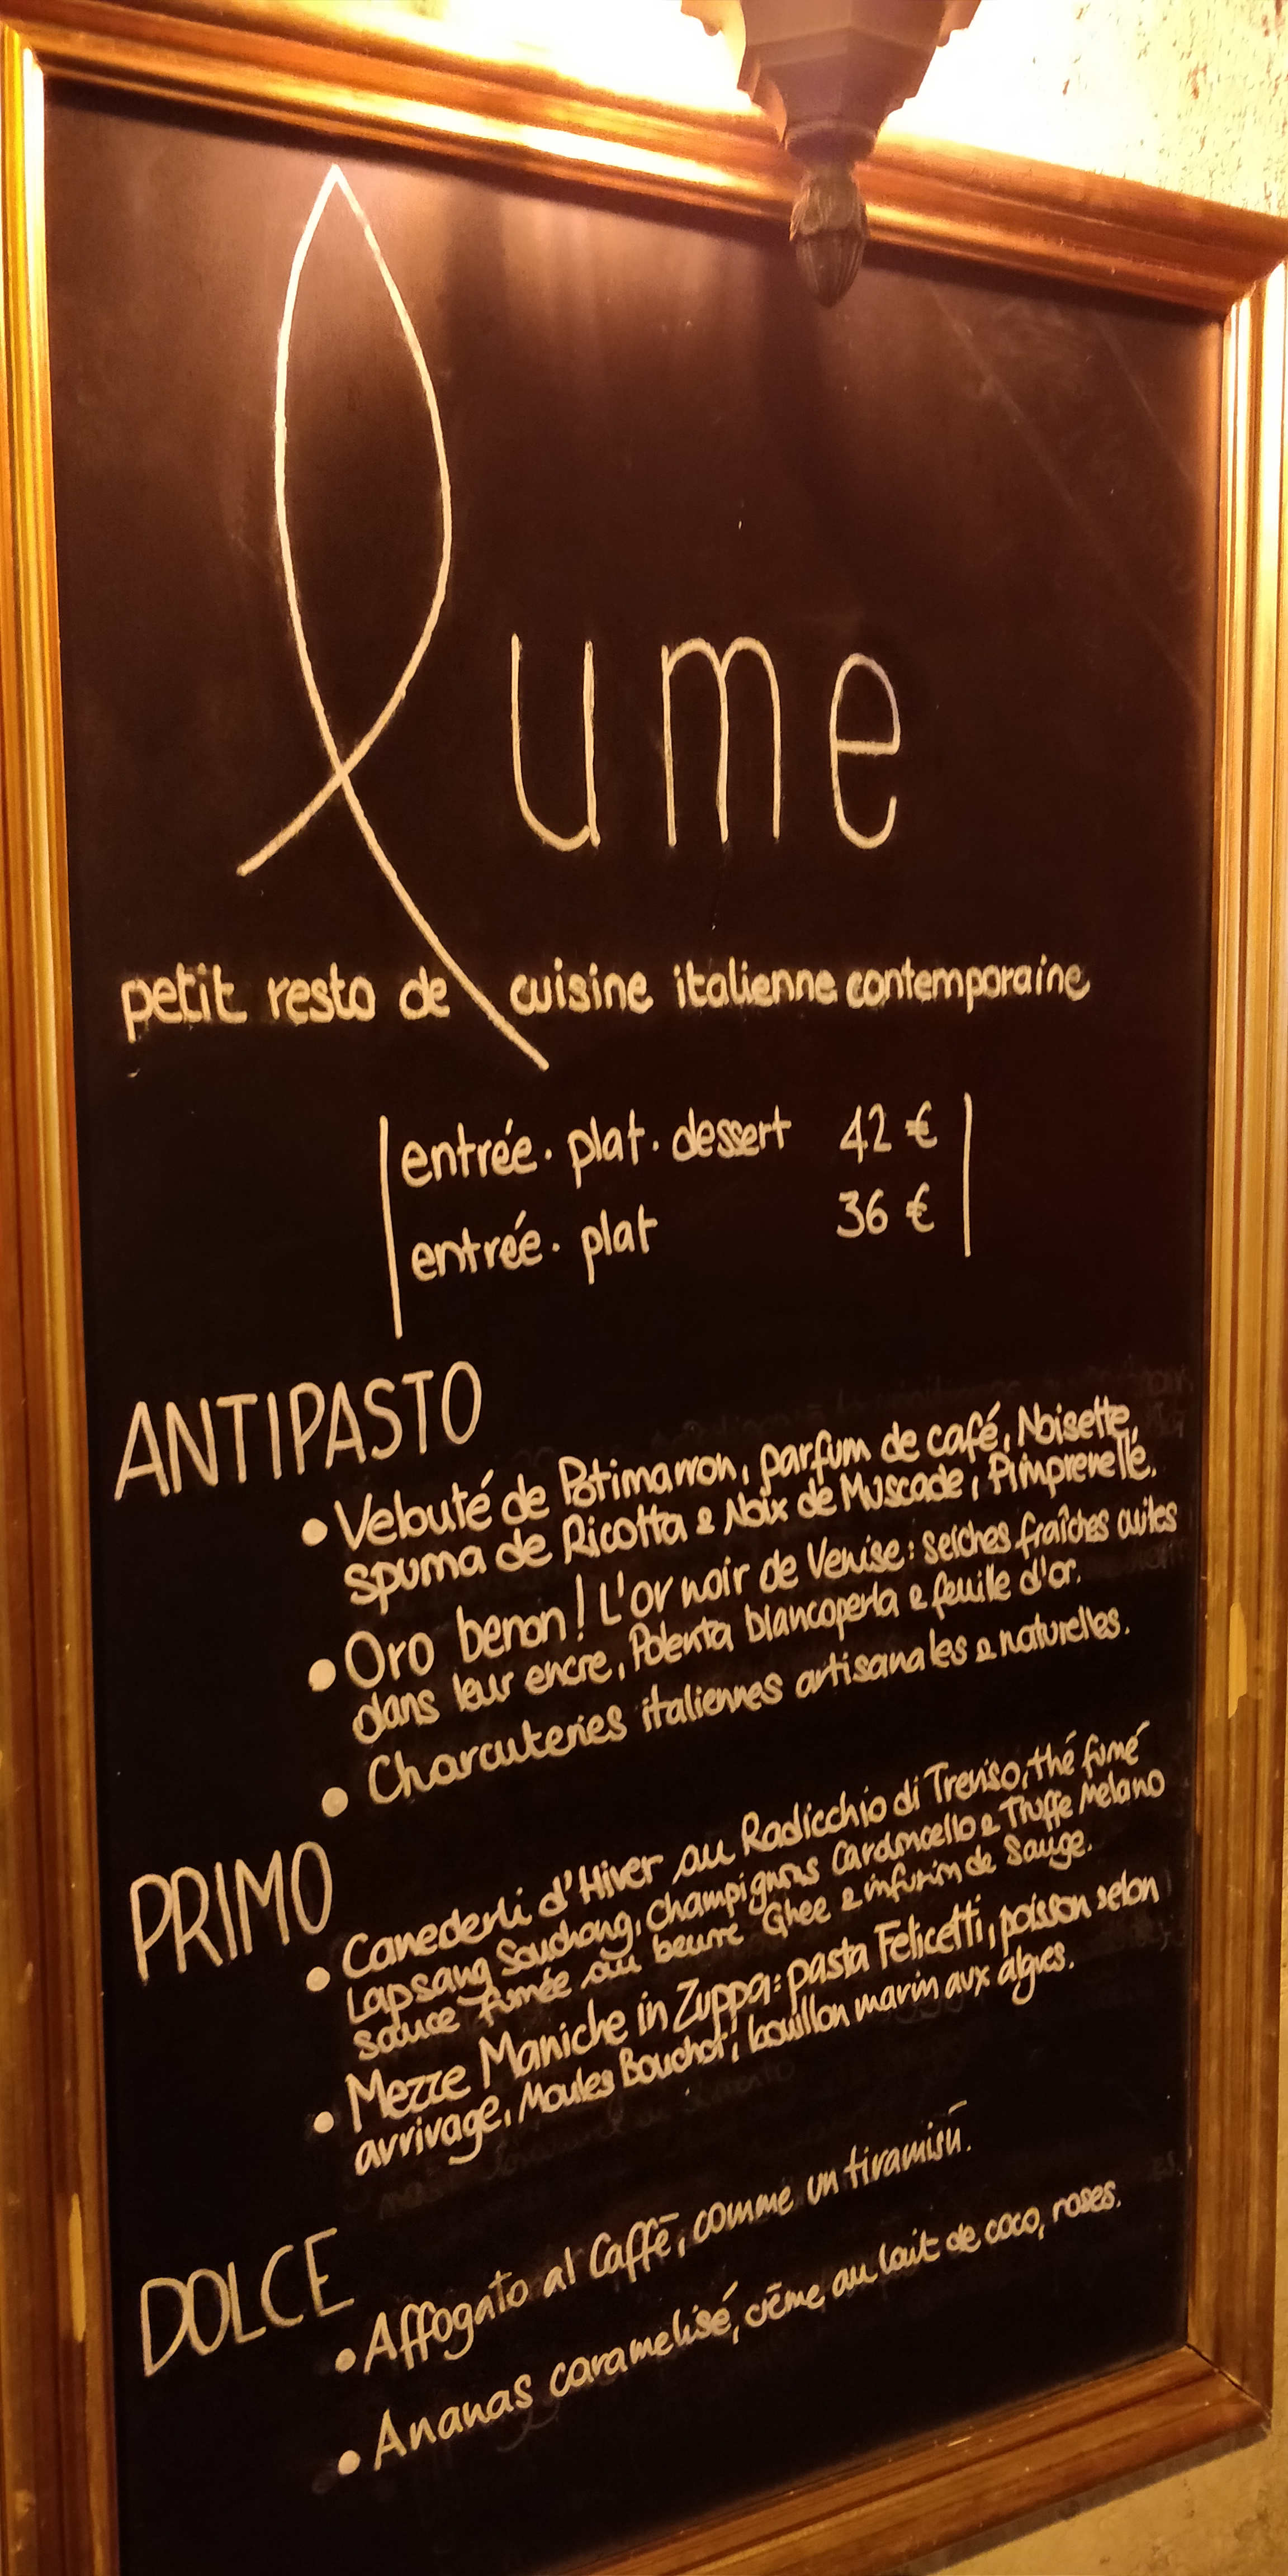 lume
petit resto de cuisine italienne contemporaine
entrée · plat · dessert 42 €
entrée · plat 36 €
ANTIPASTO
• Velouté de Potimarron, parfum de café, Noisette,
spuma de Ricotta e Noix de Muscade, Pimprenelle.
• Oro benon! L'or noir de Venise: seiches fraîches cuites
dans leur encre, Polenta biancoperla e feuille d'or.
• Charcuteries italiennes artisanales e naturelles.
PRIMO
• Canederli d'Hiver au Radicchio di Treviso, thé fumé
Lapsang Souchong, champignons Cardoncello e Truffe Melano
sauce fumée au beurre Ghee e infusion de Sauge.
• Mezze Maniche in Zuppa: pasta Felicetti, poisson selon
arrivage, Moules Bouchot, bouillon marin aux algues.
DOLCE
• Affogato al Caffè, comme un tiramisù.
• Ananas caramelisé, crème au lait de coco, roses.